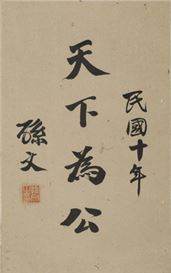 民國十年
天下為公
孫文